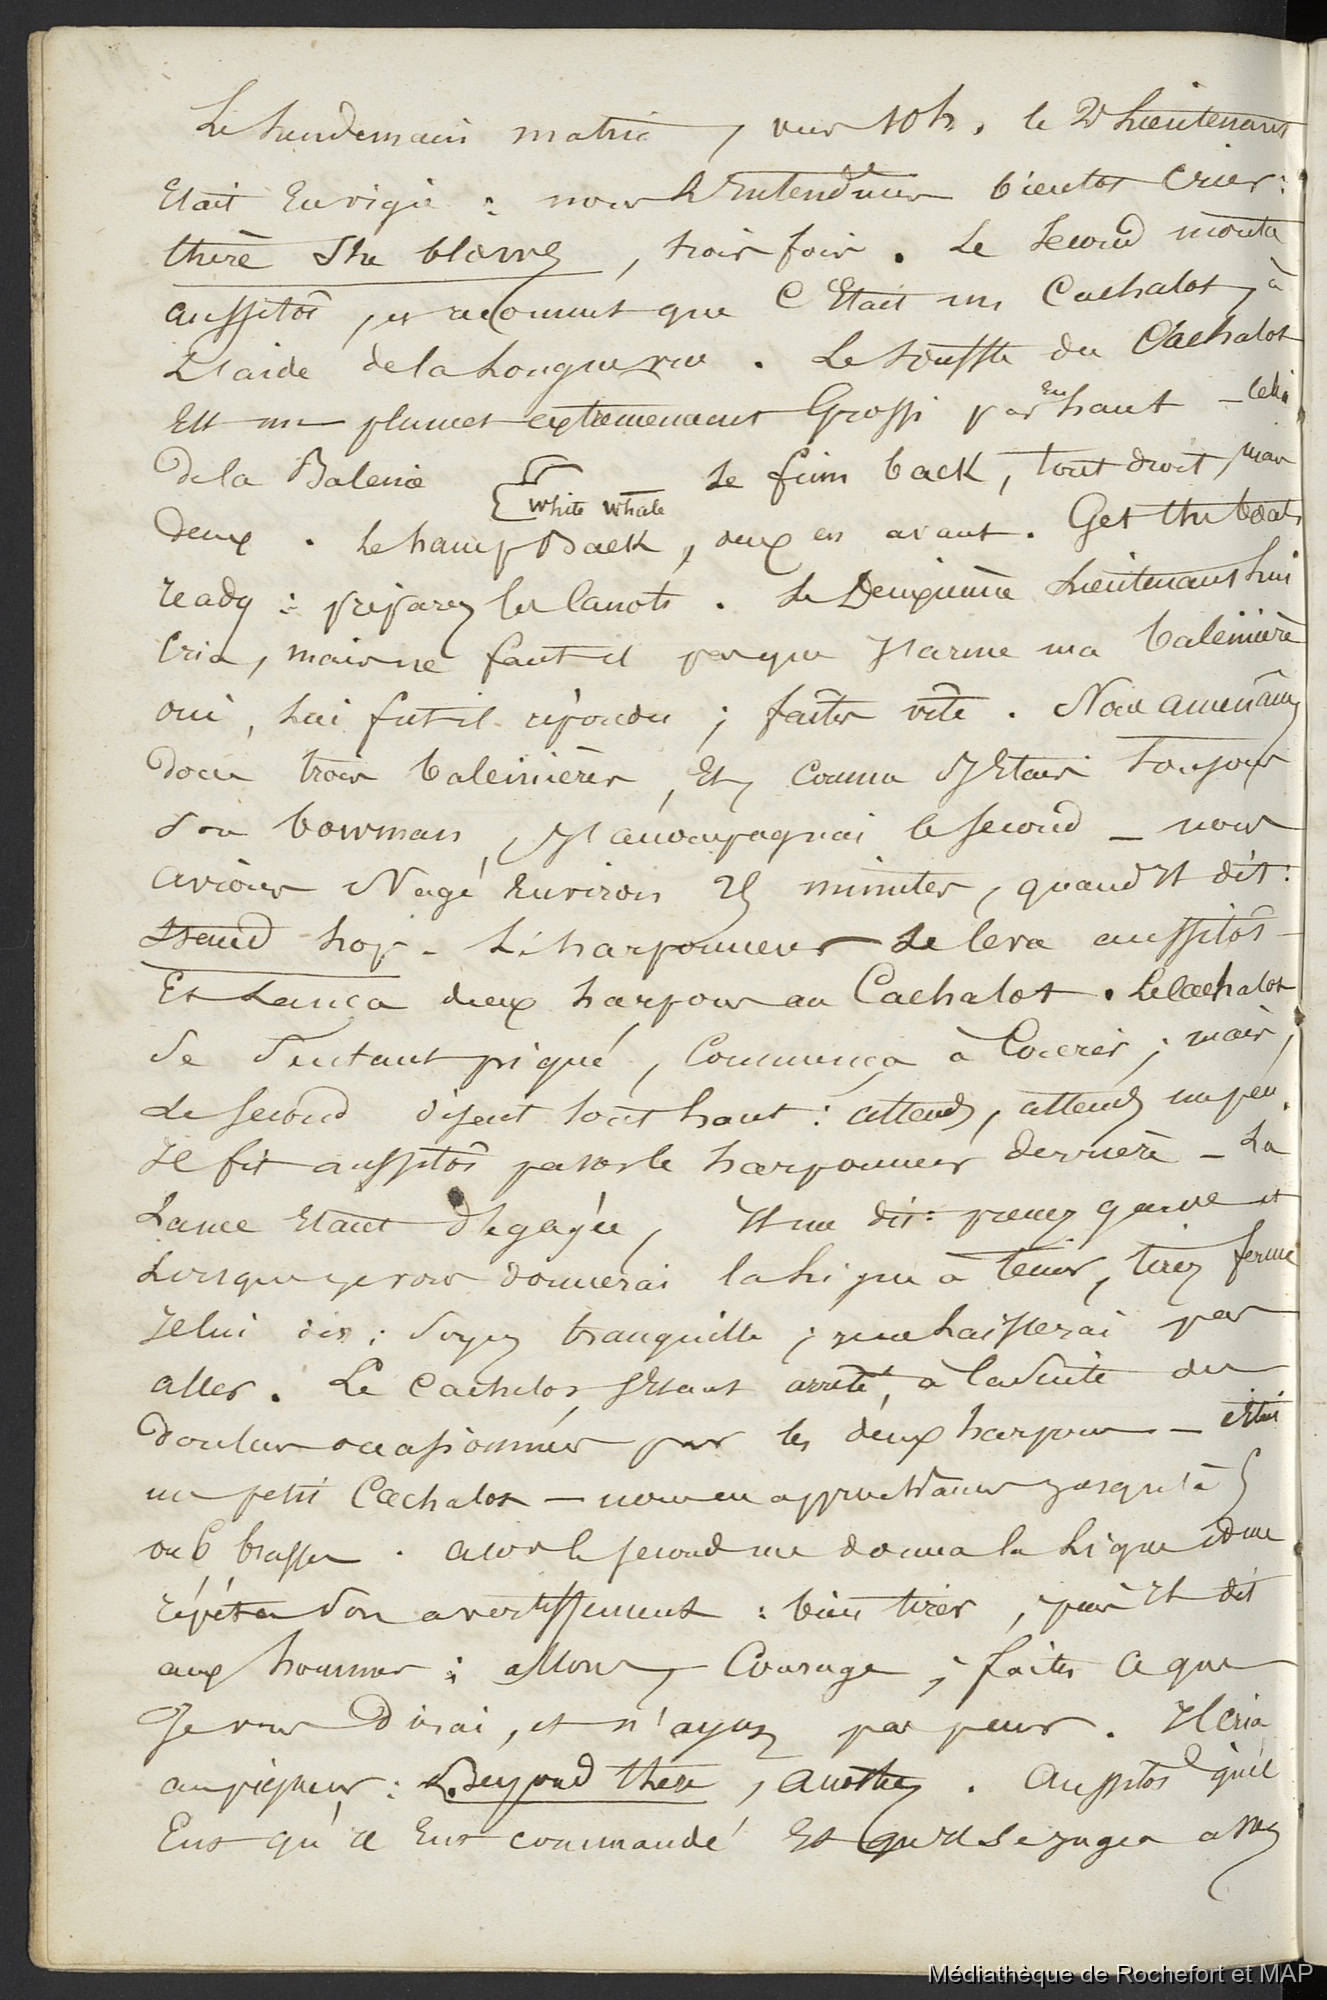 Le lendemain matin, vers 10 h, le 2d Lieutenant
Etait En vigie : nous L'Entendimes bientot Crier :
there She blows, trois fois. Le Second monta
aussitôt, et reconnut que C'Etait un Cachalot, à
L'aide de la Longue vue. Le Souffle du Cachalot
Est un plumet extremement Grossi par En haut - Celui
De la Baleine Le finn back, tout droit, mais
white whale
Deux. Le hump Back, deux en avant. Get the boats
ready : préparez les Canots. Le Deuxieme Lieutenant lui
Cria, mais ne faut il pas que J'arme ma baleinière
oui, Lui fut il répondu ; faites vite. Nous amenâmes
Donc trois baleinières, Et, Comme J'Etais toujours
Son bowman, J'accompagnai le Second - nous
avions Nagé Environ 25 minutes, quand Il dit :
Stand hop - Le harponneur Se leva aussitôt -
Et Lança deux harpons au Cachalot. Le Cachalot
Se Sentant piqué, Commença à Courir ; mais,
Le Second disait tout haut : attends, attends un peu.
Il fit aussitôt passer le harponneur derrière - La
Lance Etant dégagée, Il me dit : prenez garde et
Lorsque je vous donnerai la Ligne à tenir, tirez ferme
Je lui dis : Soyez tranquille ; je ne Laisserai pas
aller. Le Cachalot s'Etant arrêté, à la Suite des
Douleurs occasionnées par les deux harpons - c'Etait
un petit Cachalot - nous en approchames jusqu'à 5
ou 6 brasses. alors le second me donna la Ligne et me
répéta Son avertissement : bien tirer, puis Il dit
aux hommes : allons, Courage ; faites Ce que
Je vous Dirai, et n'ayez pas peur. Il cria
au piqueur : Beyond there, another. Aussitôt qu'il
Eut qu'il Eut commandé Et qu'Il Se jugea assez